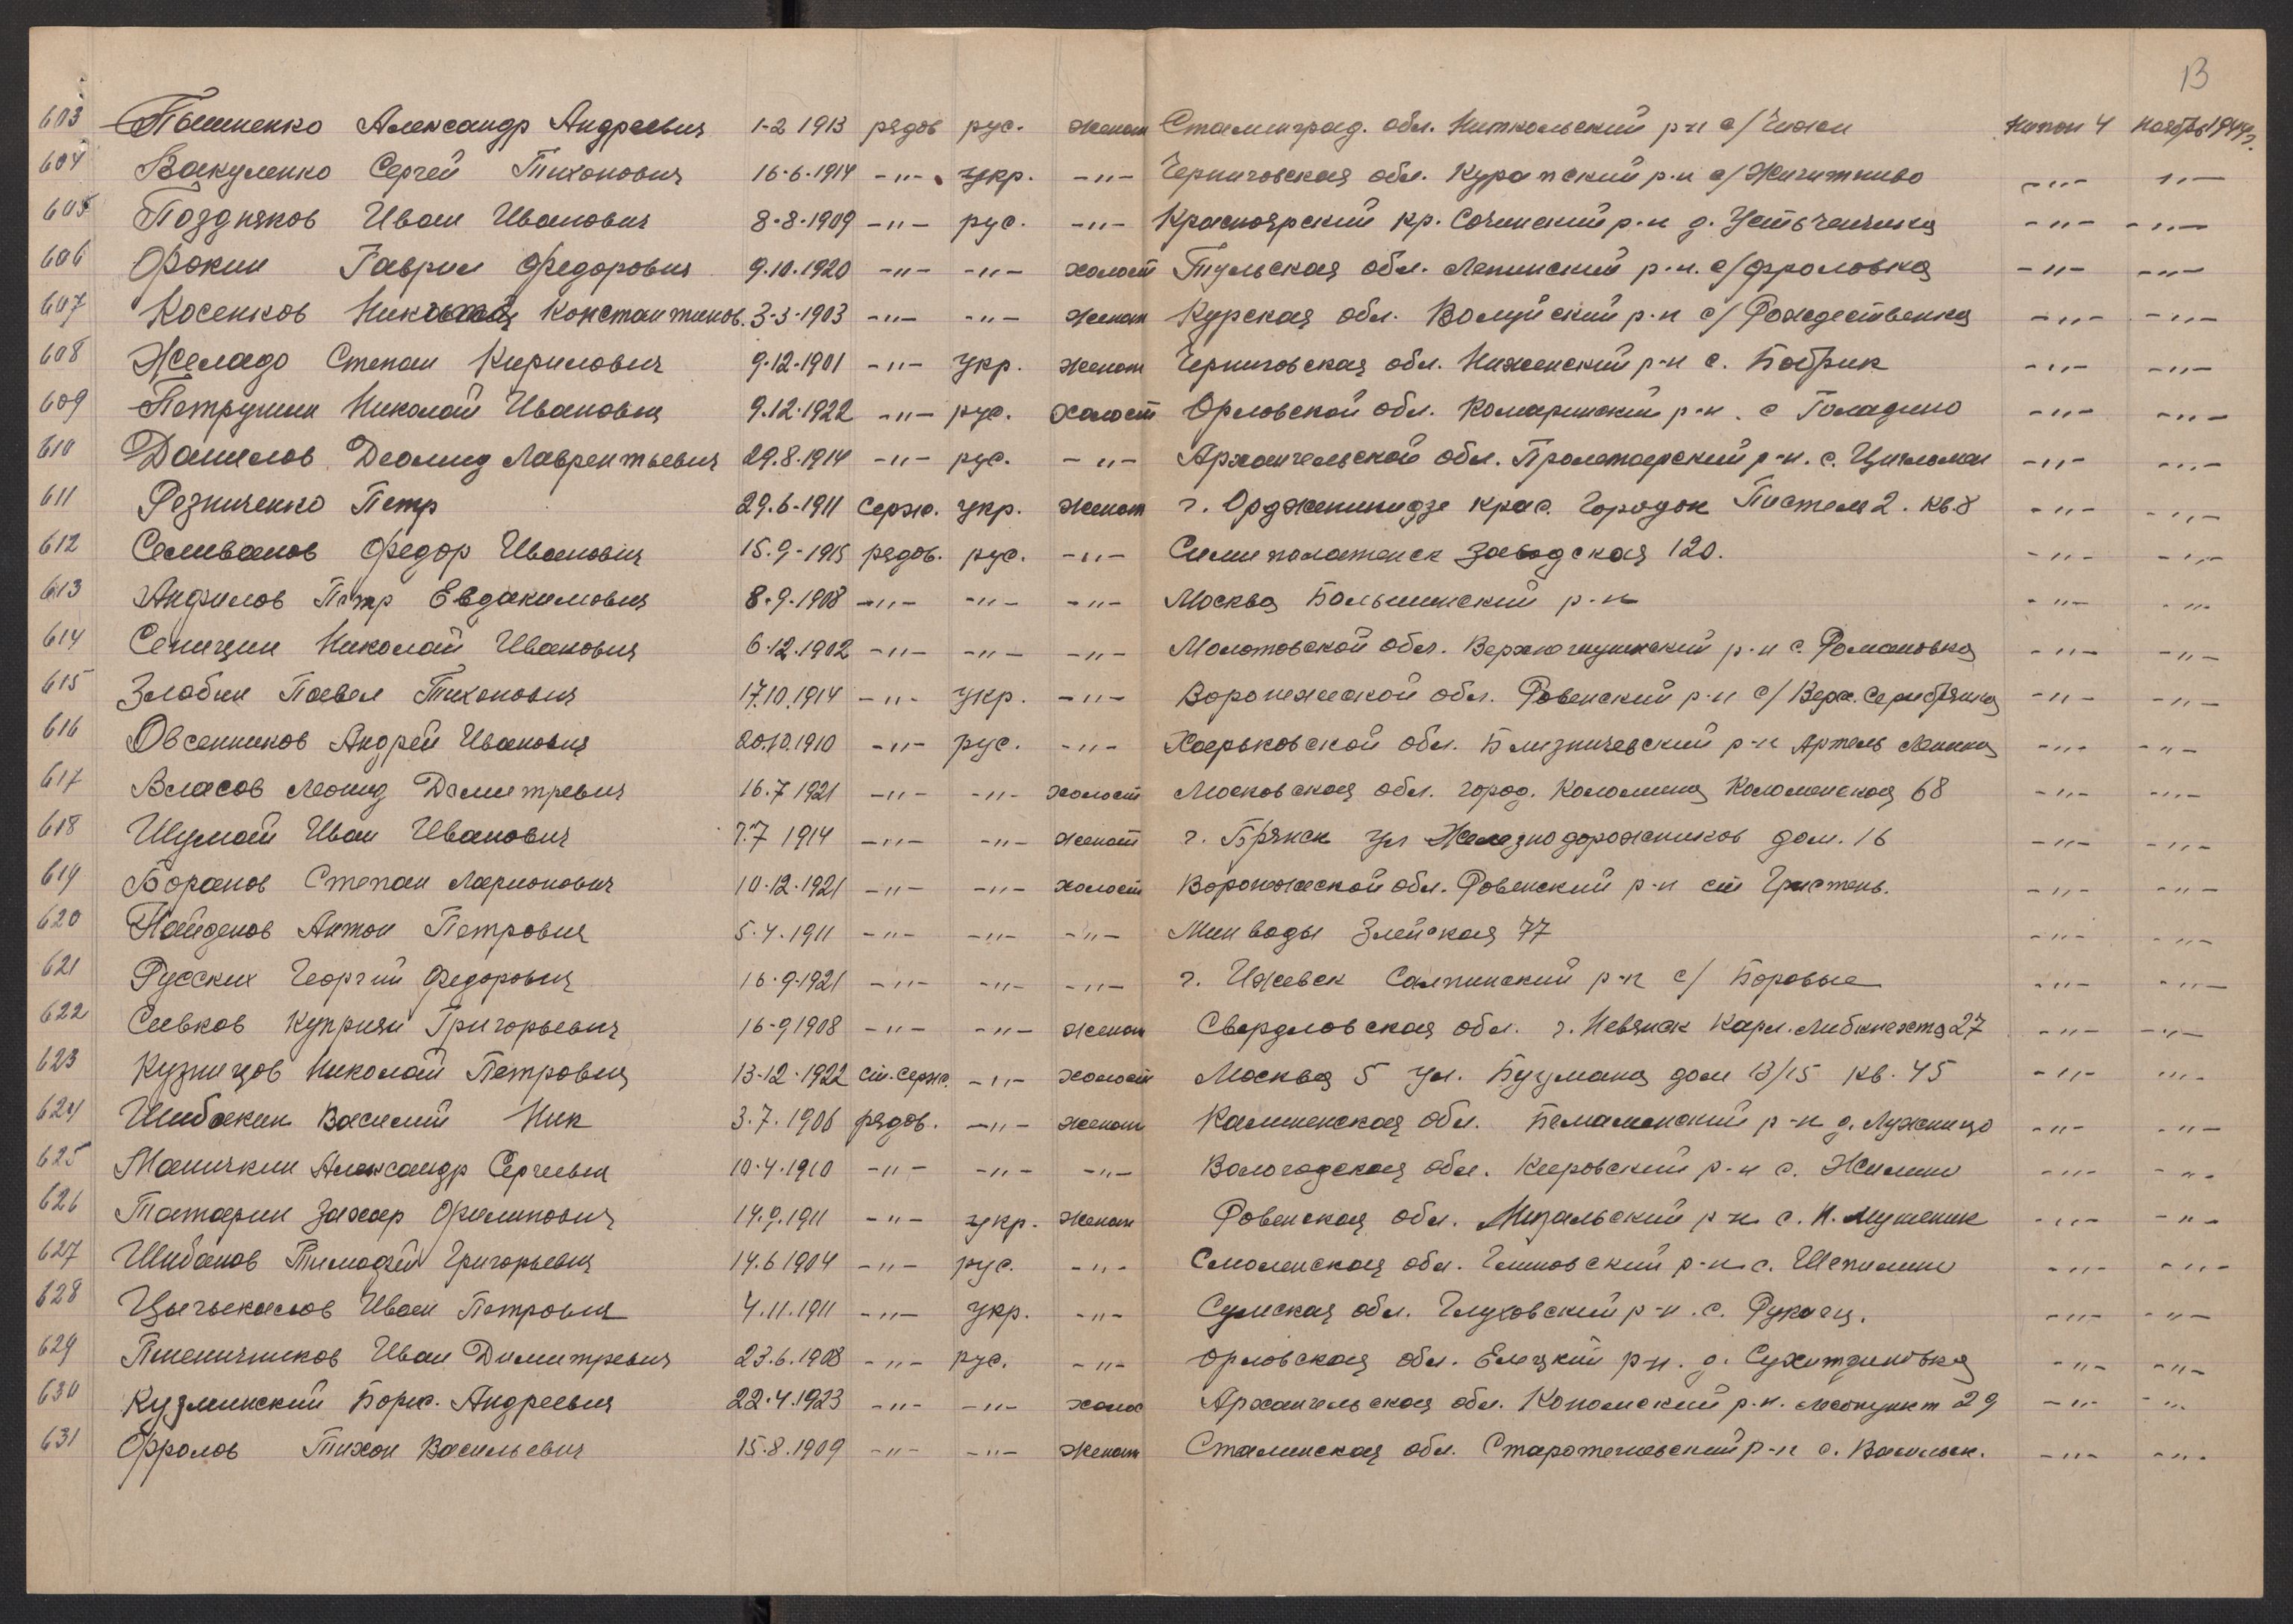 13
603 Пышненко Александр Андреевич 1-2 1913 рядов рус. женат Сталинград. обл. р-н с/ Чижи 4 ноябрь 1944г.
604 Вакуленко Сергей Тихонович 16-6-1914 -"- укр. -"- Черниговская обл. р-н с/ -"- -"-
605 Поздняков Иван Иванович 8-8-1909 -"- рус. -"- Красноярский кр. р-н д. -"- -"-
606 Фокин Гаврил Федорович 9.10.1920 -"- -"- холост Тульская обл. Ленинский р-н. с/ Фроловка -"- -"-
607 Косенков Николай Константинов. 3-3-1903 -"- -"- женат Курская обл. Волуйский р-н с/ Рождественка -"- -"-
608 Желадо Степан Кирилович 9-12-1901 -"- укр. женат Черниговская обл. Нижен­ский р-н с. Бобрик -"- -"-
609 Петрушин Николай Иванович 9.12.1922 -"- рус. холост Орловской обл. Комаринский р-н. с -"- -"-
610 Данилов Деомид Лаврентьевич 29.8.1914 -"- рус. -"- Архангельской обл. р-н. с. -"- -"-
611 Резниченко Петр 29.6-1911 серж. укр. женат г. Орджоникидзе крас. городок Пистеля 2. кв. 8 -"- -"-
612 Селиванов Федор Иванович 15.9-1915 рядов. рус. -"- Симиполатенск Заводская 120. -"- -"-
613 Анфилов Петр Евдакимович 8-9-1908 -"- -"- -"- Москва р-н -"- -"-
614 Сеницин Николай Иванович 6-12.1902 -"- -"- -"- Молотовской обл. р-н с. Романовка -"- -"-
615 Злобин Павел Тихонович 17.10.1914 -"- укр. -"- Воронежской обл. Ровенский р-н с/ Верх. Серибрянка -"- -"-
616 Овсенников Андрей Иванович 20.10.1910 -"- рус. -"- Харьковской обл. Близничевский р-н Артель Ленина -"- -"-
617 Власов Леонид Дамитревич 16.7 1921 -"- -"- холост Московская обл. город. Коломина Коломенская 68 -"- -"-
618 Шумай Иван Иванович 7.7 1914 -"- -"- женат г. Брянск ул Железнодорожников дом. 16 -"- -"-
619 Боранов Степан Ларионович 10-12-1921 -"- -"- холост Воронежской обл. Ровенский р-н -"- -"-
620 Найденов Антон Петрович 5.4.1911 -"- -"- -"- Минводы Змейская 77 -"- -"-
621 Русских Георгий Федорович 16-9-1921 -"- -"- -"- г. Ижевск р-н с/ Боровые -"- -"-
622 Сивков Куприян Григорьевич 16-9 1908 -"- -"- женат Свердловская обл. г. Невянск Карл. Либкнехта 27 -"- -"-
623 Кузницов Николай Петрович 13-12-1922 ст. серж. -"- холост Москва 5 ул. Буумана дом 13/15 кв. 45 -"- -"-
624 Шибакин Василий Ник 3.7.1906 рядов. -"- женат Калиненская обл. р-н д. -"- -"-
625 Маничкин Александр Сергеевич 10-4-1910 -"- -"- -"- Вологодская обл. Кировский р-н с. Жилино -"- -"-
626 Татарин Захар Филипович 14.9.1911 -"- укр. женат Ровенская обл. р-н с. -"- -"-
627 Шибанов Тимофей Григорьевич 14.6 1904 -"- рус. -"- Смоленская обл. Глиновский р-н с. Шепилино -"- -"-
628 Иван Петрович 4.11.1911 -"- укр. -"- Сумская обл. Глуховский р-н. с. -"- -"-
629 Пшеничников Иван Димитревич 23.6.1908 -"- рус. -"- Орловская обл. Елецкий р-н. д. -"- -"-
630 Кузминский Борис. Андреевич 22.4.1923 -"- -"- холос Архангельская обл. р-н. лесопункт 29 -"- -"-
631 Фролов Тихон Васильевич 15.8.1909 -"- -"- женат Сталинская обл. р-н с. Васильек. -"- -"-